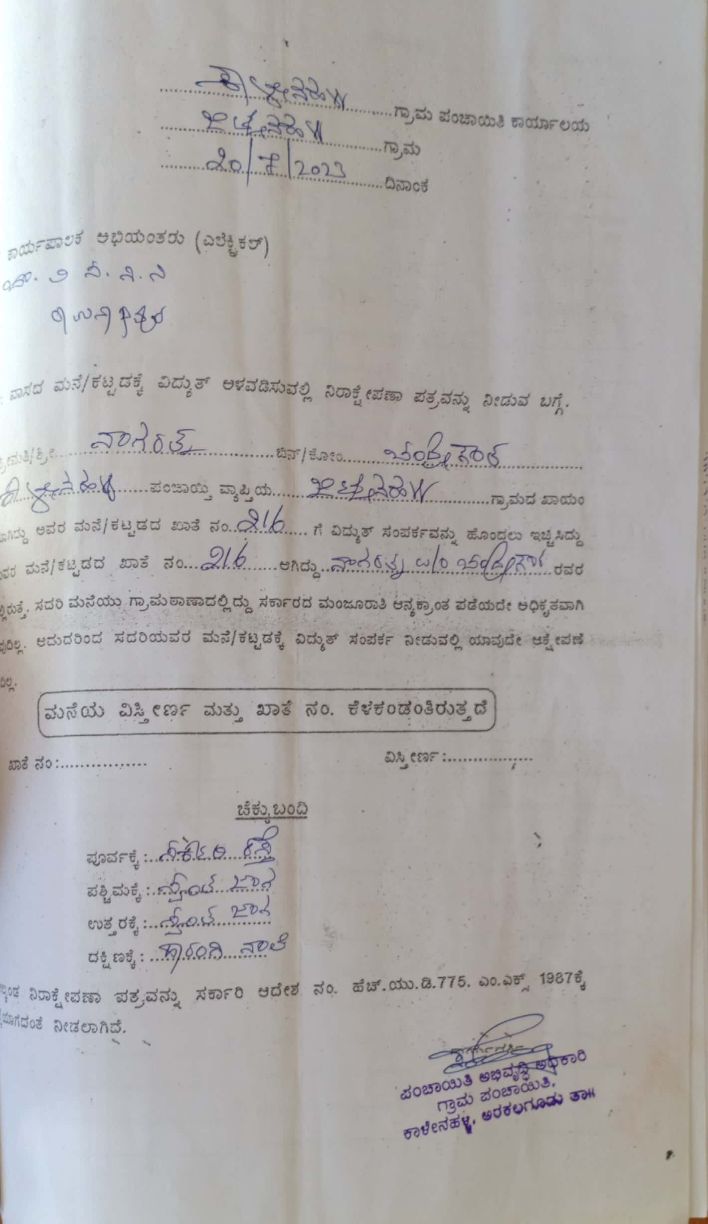 ಕಾಳೇನಹಳ್ಳಿ ಗ್ರಾಮ ಪಂಚಾಯಿತಿ ಕಾರ್ಯಾಲಯ
ಗ್ರಾಮ
20/7/2023 ದಿನಾಂಕ
ಕಾರ್ಯಪಾಲಕ ಅಭಿಯಂತರು (ಎಲೆಕ್ಟ್ರಿಕಲ್)
ವಾಸದ ಮನೆ/ಕಟ್ಟಡಕ್ಕೆ ವಿದ್ಯುತ್ ಅಳವಡಿಸುವಲ್ಲಿ ನಿರಾಕ್ಷೇಪಣಾ ಪತ್ರವನ್ನು ನೀಡುವ ಬಗ್ಗೆ.
ನಾಗರತ್ನ ಬಿನ್/ಕೋಂ
ಕಾಳೇನಹಳ್ಳಿ ಪಂಚಾಯ್ತಿ ವ್ಯಾಪ್ತಿಯ ಗ್ರಾಮದ ಖಾಯಂ
ಅವರ ಮನೆ/ಕಟ್ಟಡದ ಖಾತೆ ನಂ. 216 ಗೆ ವಿದ್ಯುತ್ ಸಂಪರ್ಕವನ್ನು ಹೊಂದಲು ಇಚ್ಛಿಸಿದ್ದು
ಮನೆ/ಕಟ್ಟಡದ ಖಾತೆ ನಂ. 216 ಆಗಿದ್ದು ನಾಗರತ್ನ ರವರ
ಸದರಿ ಮನೆಯು ಗ್ರಾಮಠಾಣಾದಲ್ಲಿದ್ದು ಸರ್ಕಾರದ ಮಂಜೂರಾತಿ ಅನ್ಯಕ್ರಾಂತ ಪಡೆಯದೇ ಅಧಿಕೃತವಾಗಿ
ಆದುದರಿಂದ ಸದರಿಯವರ ಮನೆ/ಕಟ್ಟಡಕ್ಕೆ ವಿದ್ಯುತ್ ಸಂಪರ್ಕ ನೀಡುವಲ್ಲಿ ಯಾವುದೇ ಆಕ್ಷೇಪಣೆ
ಮನೆಯ ವಿಸ್ತೀರ್ಣ ಮತ್ತು ಖಾತೆ ನಂ. ಕೆಳಕಂಡಂತಿರುತ್ತದೆ
ಖಾತೆ ನಂ:................ ವಿಸ್ತೀರ್ಣ:................
ಚೆಕ್ಕುಬಂದಿ
ಪೂರ್ವಕ್ಕೆ: ರಸ್ತೆ
ಪಶ್ಚಿಮಕ್ಕೆ: ಸ್ವಂತ ಜಾಗ
ಉತ್ತರಕ್ಕೆ: ಸ್ವಂತ ಜಾಗ
ದಕ್ಷಿಣಕ್ಕೆ: ಹಾರಂಗಿ ನಾಲೆ
ನಿರಾಕ್ಷೇಪಣಾ ಪತ್ರವನ್ನು ಸರ್ಕಾರಿ ಆದೇಶ ನಂ. ಹೆಚ್.ಯು.ಡಿ.775. ಎಂ.ಎಕ್ಸ್ 1987ಕ್ಕೆ
ನೀಡಲಾಗಿದೆ.
ಪಂಚಾಯಿತಿ ಅಭಿವೃದ್ಧಿ ಅಧಿಕಾರಿ
ಗ್ರಾಮ ಪಂಚಾಯಿತಿ,
ಕಾಳೇನಹಳ್ಳಿ, ಅರಕಲಗೂಡು ತಾ॥